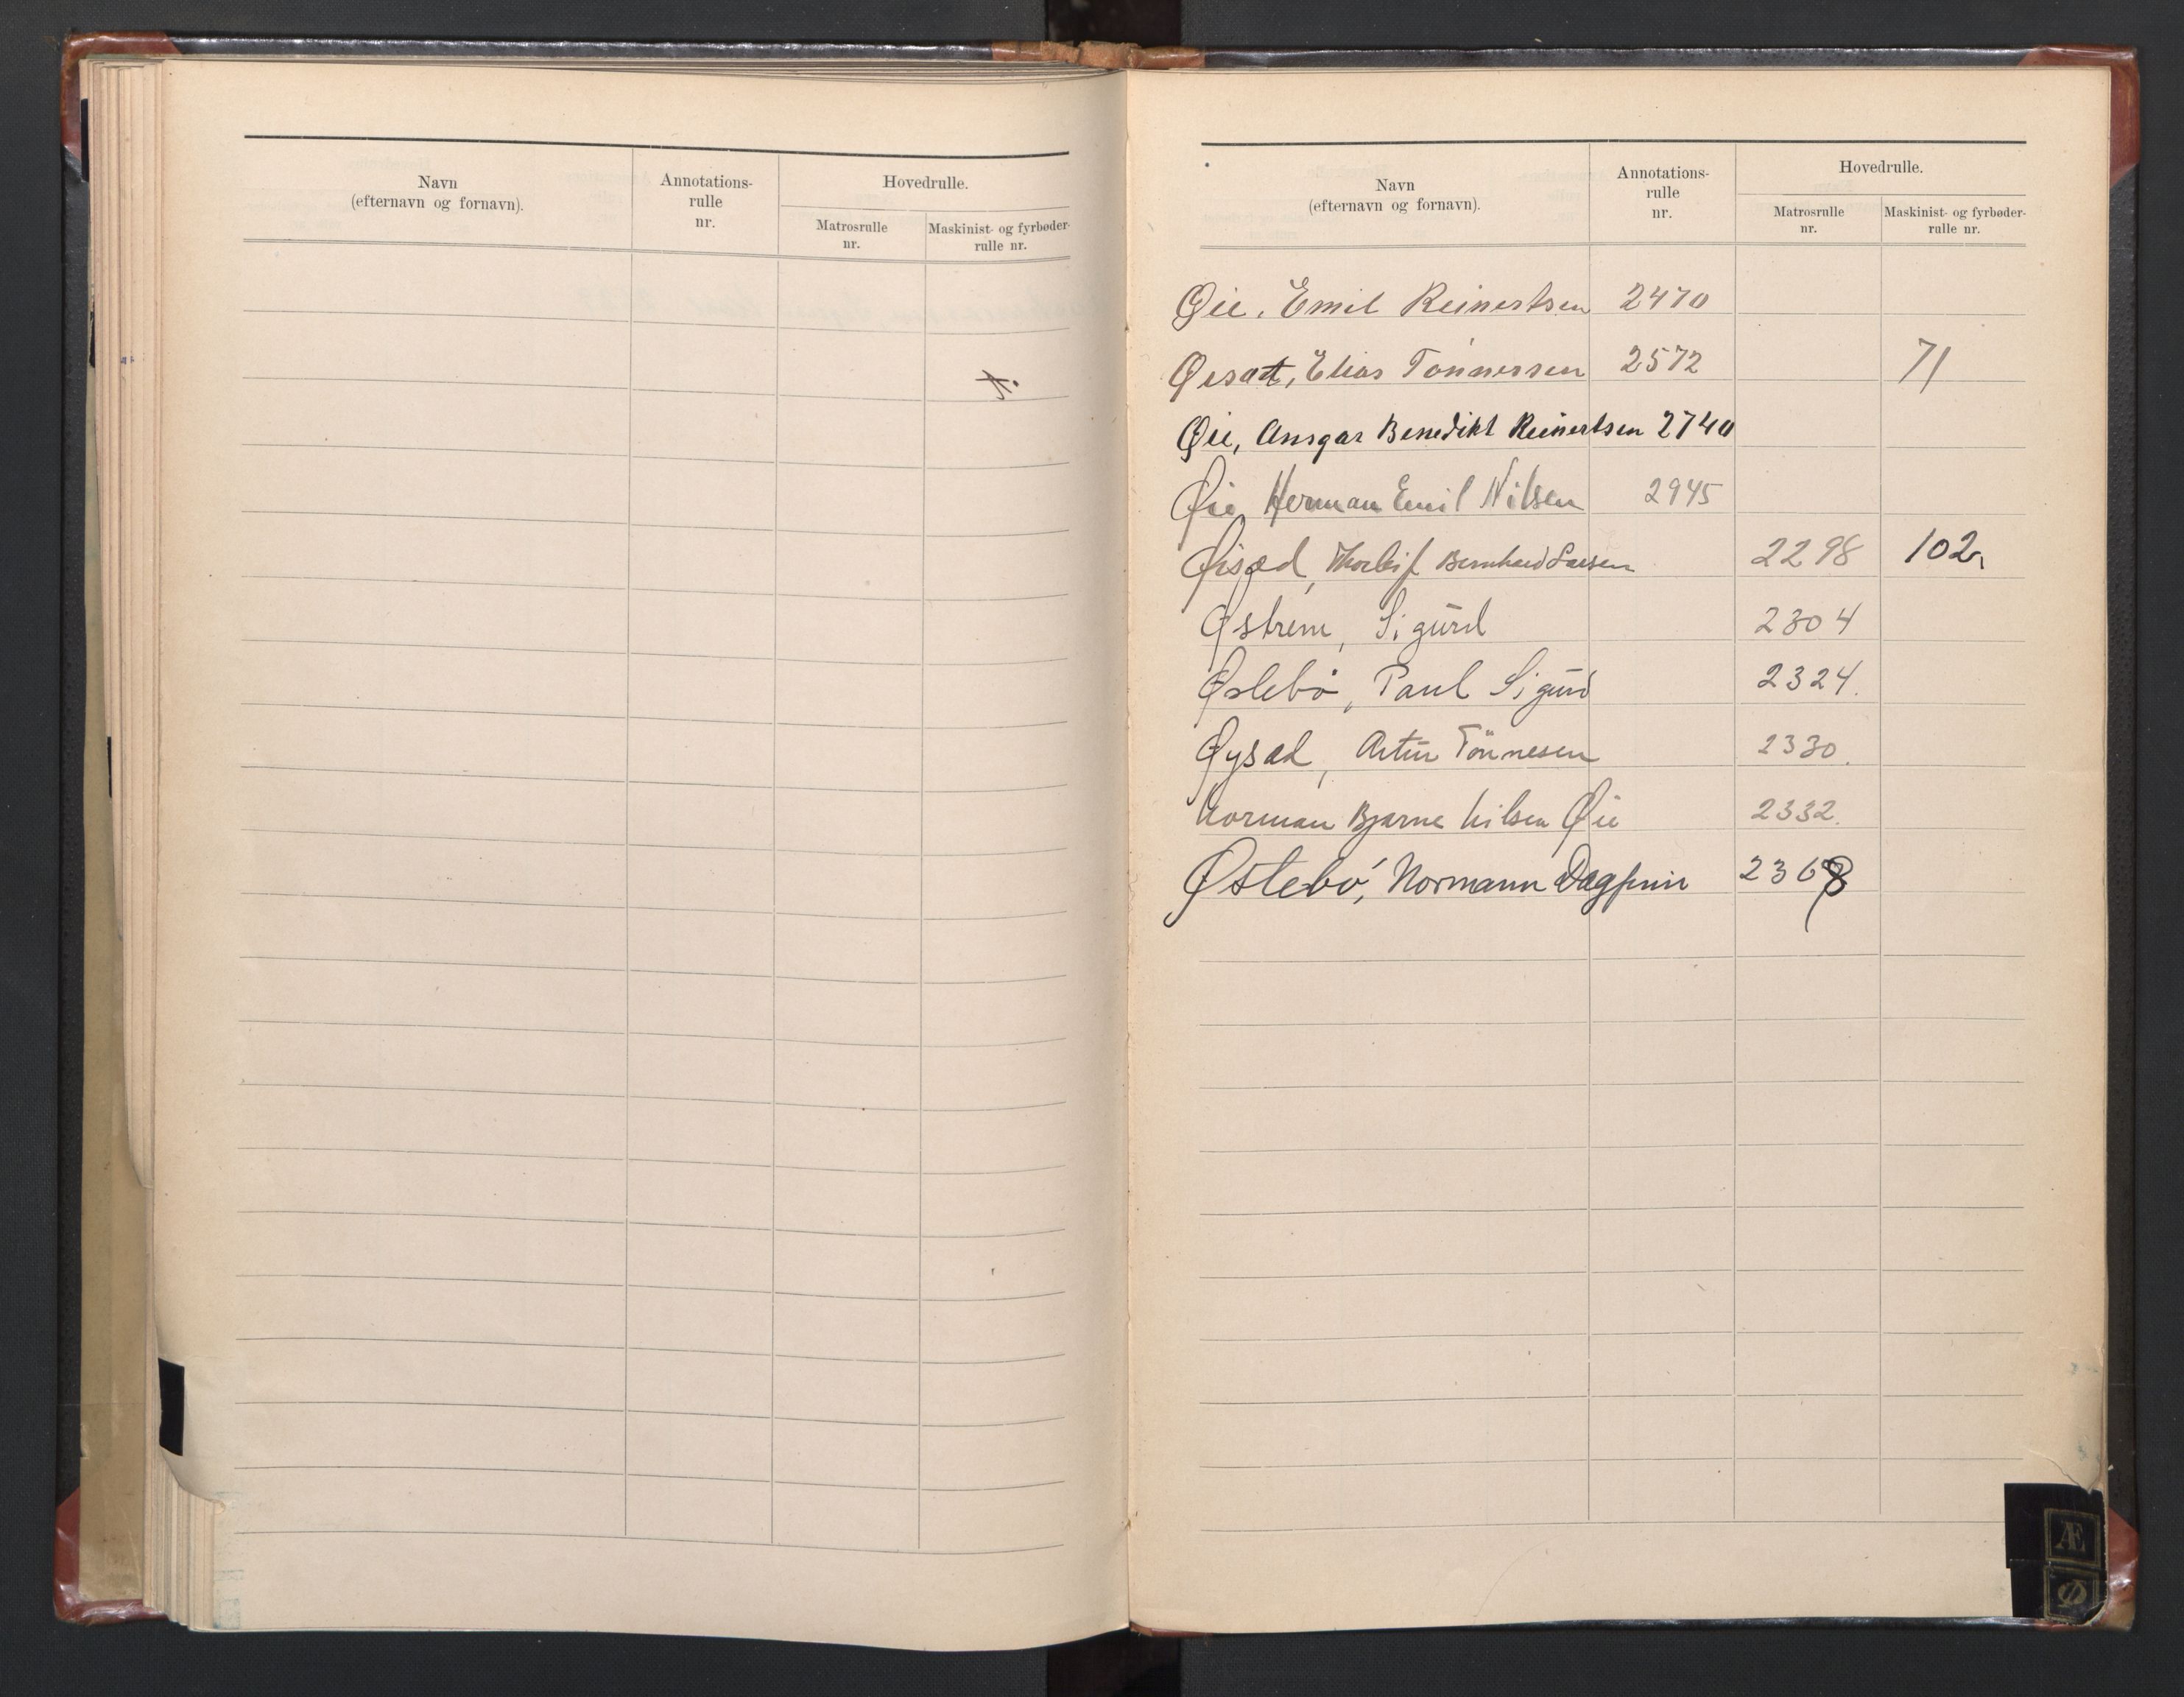 Navn
(efternavn og fornavn).
Annotations-
rulle
nr.
Hovedrulle.
Matrosrulle
nr.
Maskinist- og fyrbøder-
rulle nr.
Navn
(efternavn og fornavn).
Annotations-
rulle
nr.
Hovedrulle.
Matrosrulle
nr.
Maskinist- og fyrbøder-
rulle nr.
Øie, Emil Reinertsen 2470
Elias Tønnessen 2572 71
Øie, Ansgar Benedikt Reinertsen 2740
Øie, Herman Emil Nilsen 2945
Øisæd, Thorleif Bernhard Larsen 2298 102
Østrem, Sigurd 2304
Østebö, Paul Sigurd 2324.
Øysæd, Artur Tönnesen 2330.
Norman Bjarne Nilsen Øie 2332.
Østebö, Normann Dagfinn 2368
Æ
Ø